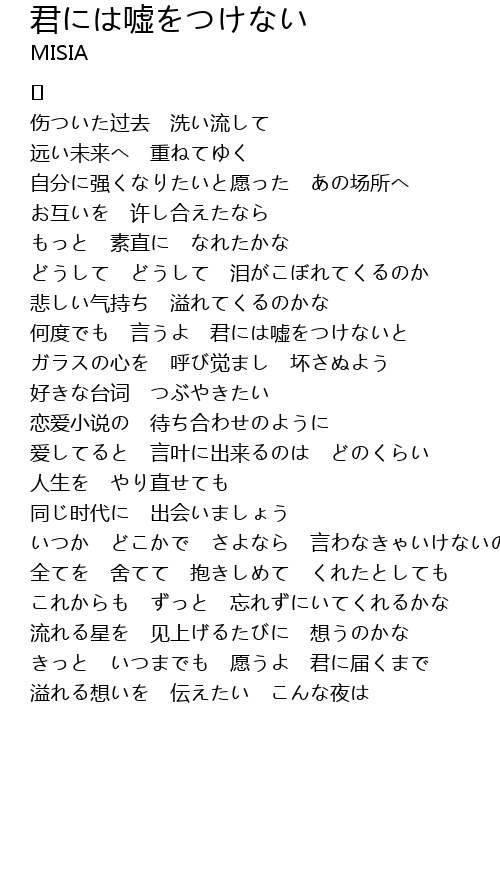 君には嘘をつけない
MISIA
[]
伤ついた过去　洗い流して
远い未来へ　重ねてゆく
自分に强くなりたいと愿った　あの场所へ
お互いを　许し合えたなら
もっと　素直に　なれたかな
どうして　どうして　泪がこぼれてくるのか
悲しい气持ち　溢れてくるのかな
何度でも　言うよ　君には嘘をつけないと
ガラスの心を　呼び觉まし　坏さぬよう
好きな台词　つぶやきたい
恋爱小说の　待ち合わせのように
爱してると　言叶に出来るのは　どのくらい
人生を　やり直せても
同じ时代に　出会いましょう
いつか　どこかで　さよなら　言わなきゃいけないの
全てを　舍てて　抱きしめて　くれたとしても
これからも　ずっと　忘れずにいてくれるかな
流れる星を　见上げるたびに　想うのかな
きっと　いつまでも　愿うよ　君に届くまで
溢れる想いを　伝えたい　こんな夜は